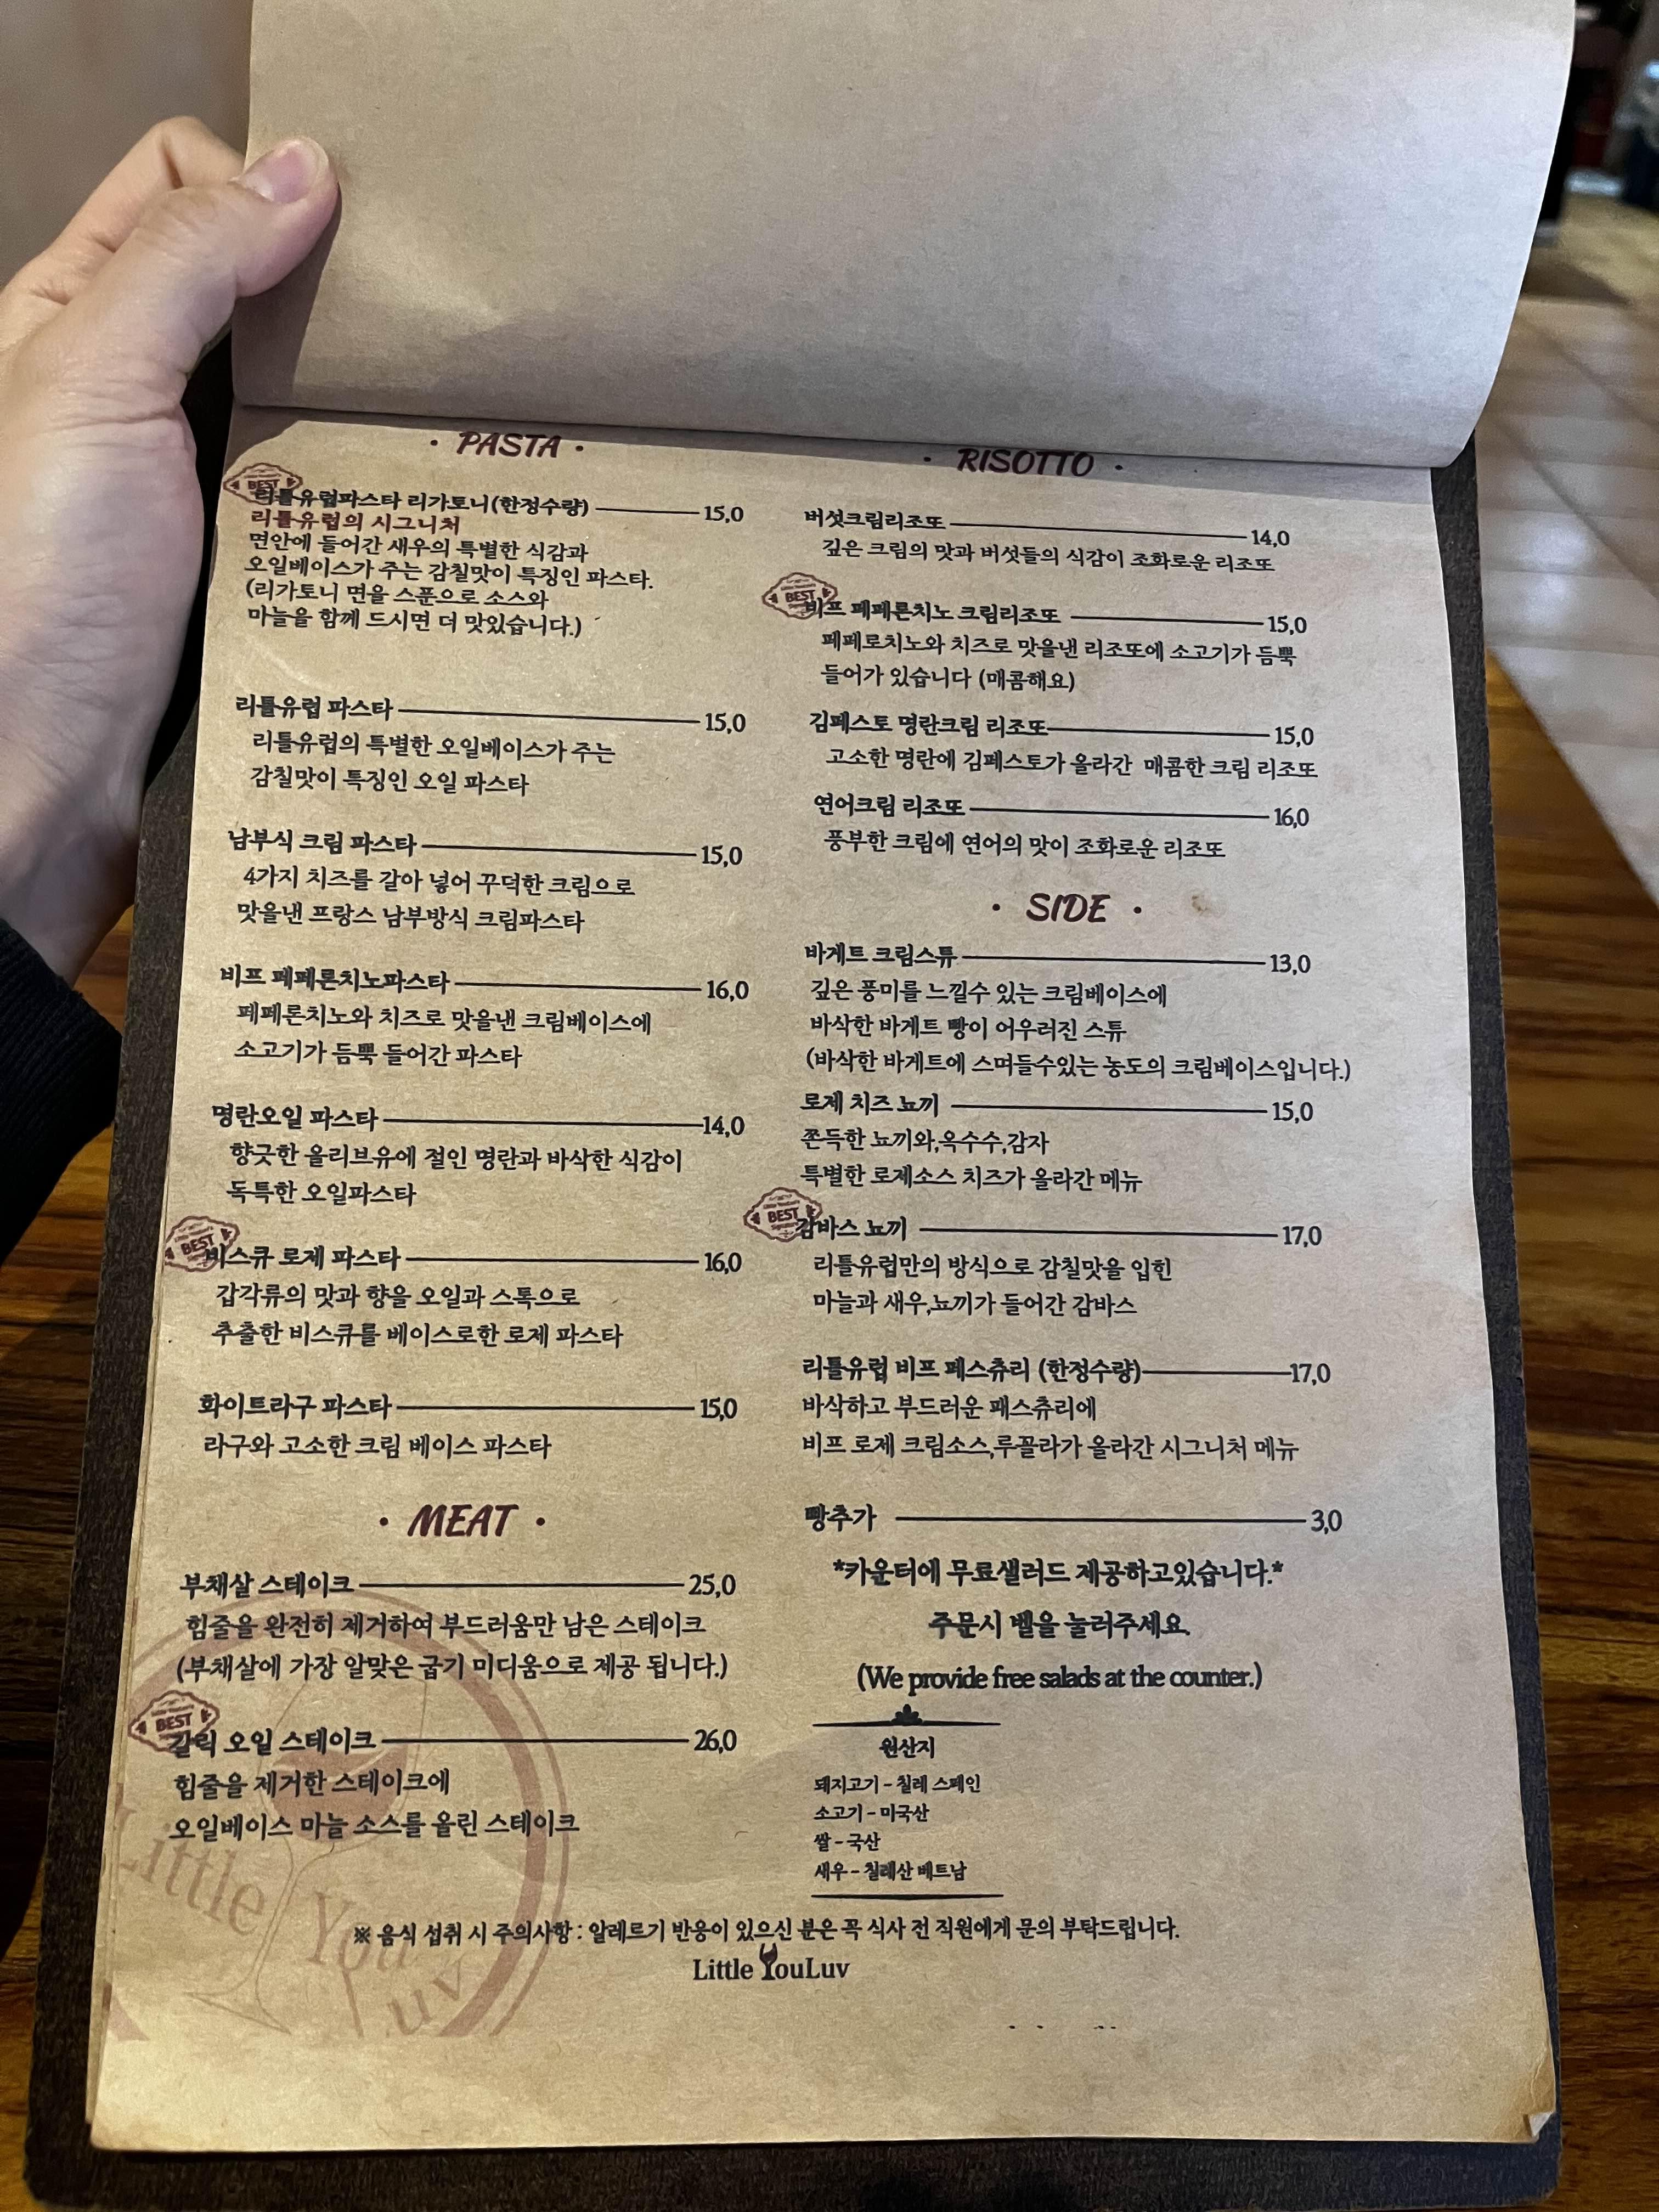 · PASTA ·
BEST
리틀유럽파스타 리가토니(한정수량) 15,0
리틀유럽의 시그니처
면안에 들어간 새우의 특별한 식감과
오일베이스가 주는 감칠맛이 특징인 파스타.
(리가토니 면을 스푼으로 소스와
마늘을 함께 드시면 더 맛있습니다.)
리틀유럽 파스타 15,0
리틀유럽의 특별한 오일베이스가 주는
감칠맛이 특징인 오일 파스타
남부식 크림 파스타 15,0
4가지 치즈를 갈아 넣어 꾸덕한 크림으로
맛을낸 프랑스 남부방식 크림파스타
비프 페페론치노파스타 16,0
페페론치노와 치즈로 맛을낸 크림베이스에
소고기가 듬뿍 들어간 파스타
명란오일 파스타 14,0
향긋한 올리브유에 절인 명란과 바삭한 식감이
독특한 오일파스타
BEST
비스큐 로제 파스타 16,0
갑각류의 맛과 향을 오일과 스톡으로
추출한 비스큐를 베이스로한 로제 파스타
화이트라구 파스타 15,0
라구와 고소한 크림 베이스 파스타
· MEAT ·
부채살 스테이크 25,0
힘줄을 완전히 제거하여 부드러움만 남은 스테이크
(부채살에 가장 알맞은 굽기 미디움으로 제공 됩니다.)
BEST
갈릭 오일 스테이크 26,0
힘줄을 제거한 스테이크에
오일베이스 마늘 소스를 올린 스테이크
Little You Luv
· RISOTTO ·
버섯크림리조또 14,0
깊은 크림의 맛과 버섯들의 식감이 조화로운 리조또
BEST
비프 페페론치노 크림리조또 15,0
페페로치노와 치즈로 맛을낸 리조또에 소고기가 듬뿍
들어가 있습니다 (매콤해요)
김페스토 명란크림 리조또 15,0
고소한 명란에 김페스토가 올라간 매콤한 크림 리조또
연어크림 리조또 16,0
풍부한 크림에 연어의 맛이 조화로운 리조또
· SIDE ·
바게트 크림스튜 13,0
깊은 풍미를 느낄수 있는 크림베이스에
바삭한 바게트 빵이 어우러진 스튜
(바삭한 바게트에 스며들수있는 농도의 크림베이스입니다.)
로제 치즈 뇨끼 15,0
쫀득한 뇨끼와,옥수수,감자
특별한 로제소스 치즈가 올라간 메뉴
BEST
감바스 뇨끼 17,0
리틀유럽만의 방식으로 감칠맛을 입힌
마늘과 새우,뇨끼가 들어간 감바스
리틀유럽 비프 페스츄리 (한정수량) 17,0
바삭하고 부드러운 패스츄리에
비프 로제 크림소스,루꼴라가 올라간 시그니처 메뉴
빵추가 3,0
*카운터에 무료샐러드 제공하고있습니다.*
주문시 벨을 눌러주세요.
(We provide free salads at the counter.)
원산지
돼지고기 - 칠레 스페인
소고기 - 미국산
쌀 - 국산
새우 - 칠레산 베트남
※ 음식 섭취 시 주의사항 : 알레르기 반응이 있으신 분은 꼭 식사 전 직원에게 문의 부탁드립니다.
Little YouLuv